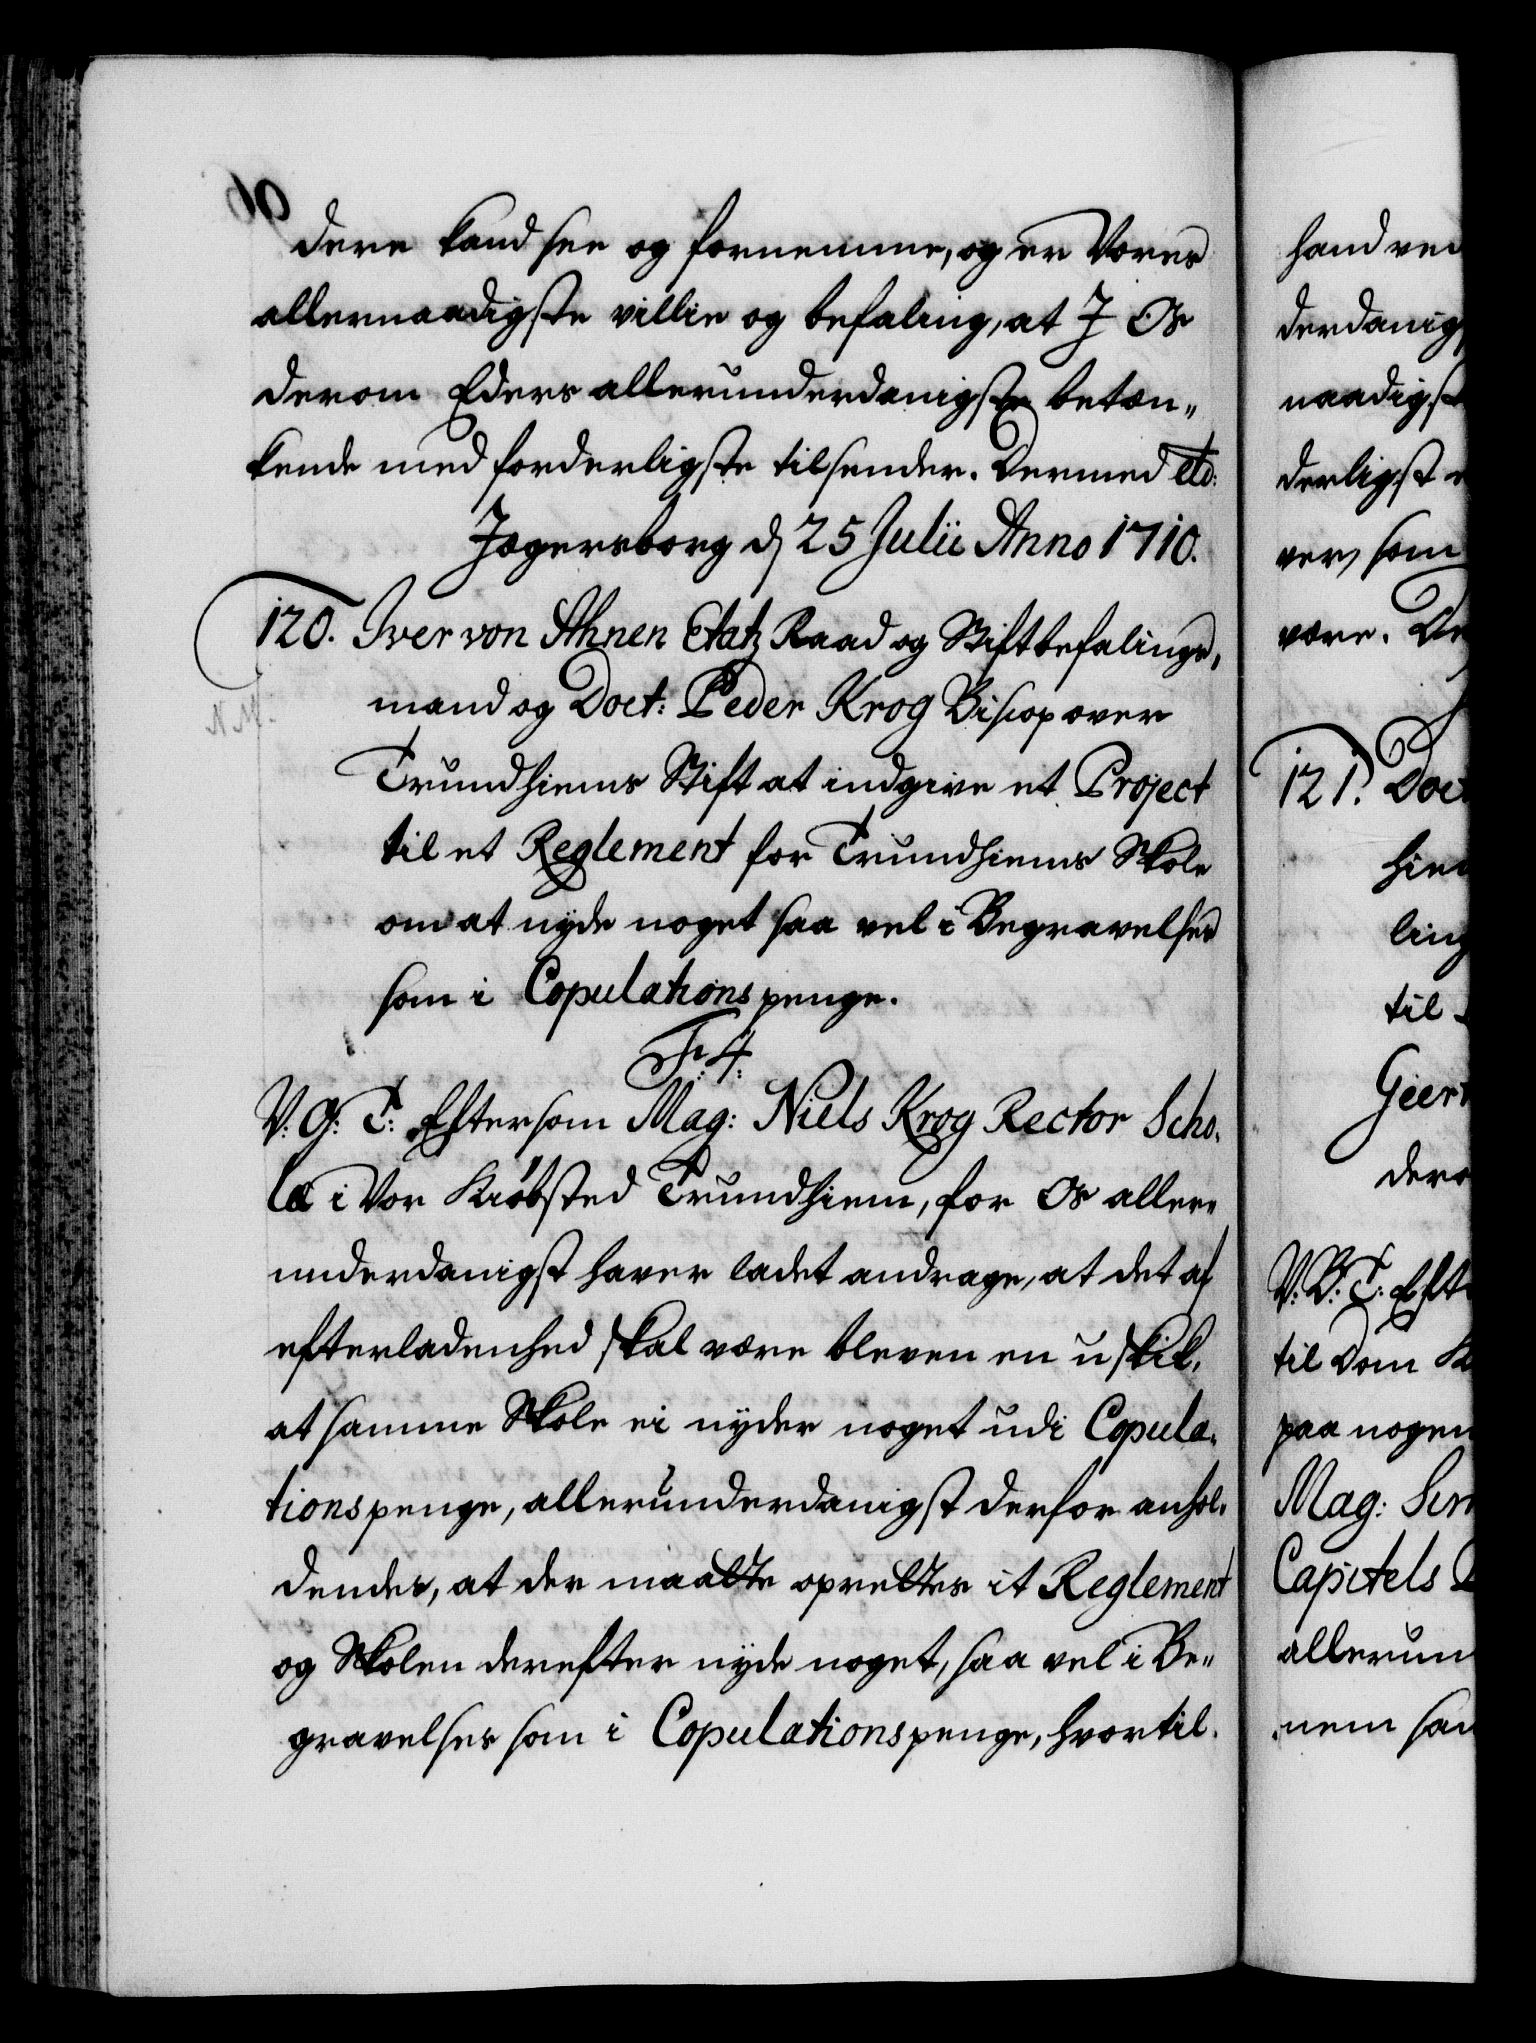 dere kand see og fornemme, og er Vores
allernaadigste villie og befaling, at J Os
derom Eders allerunderdanigste betæn„
kende med forderligste tilsender. Dermed etc:
Jægersborg d 25 Julii Anno 1710.
120. Iver von Ahnen Etatz Raad og Stiftbefalings„
mand og Doct: Peder Krog Biscop over
N.N.
Trundhiems Stift at indgive et Project
til et Reglement for Trundhiems Skole
om at nyde noget saa vel i Begravelses
som i Copulations penge.
F: 4:
V: G: T: Eftersom Mag: Niels Krog Rector Scho„
læ i Vor Kiøbsted Trundhiem, for Os aller„
underdanigst haver ladet andrage, at det af
efterladenhed skal være bleven en uskik,
at samme Skole ei nyder noget udi Copula„
tions penge, allerunderdanigst derfor anhol„
dendes, at der maatte oprettes it Reglement
og Skolen derefter nyde noget, saa vel i Be„
gravelses som i Copulations penge, hvortil
hand ved
derdanig
naadigst
derligst
ver, som
være. De
121. Doct
hiem
ling
til
Geert
dero
V. G. T: Eft
til Dom K
paa nogen
Mag:
Capitels
allerun
nem saa